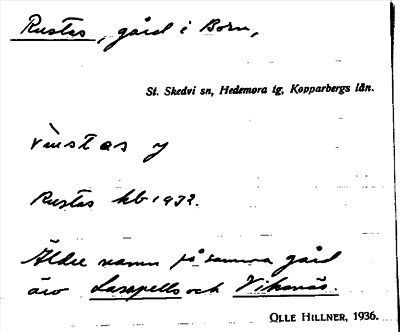 Rustas, gård i Born,
St. Skedvi sn, Hedemora tg, Kopparbergs län.
Rustas kb 1932.
Äldre namn på samma gård
äro Lasspells och Viksnäs.
OLLE HILLNER, 1936.